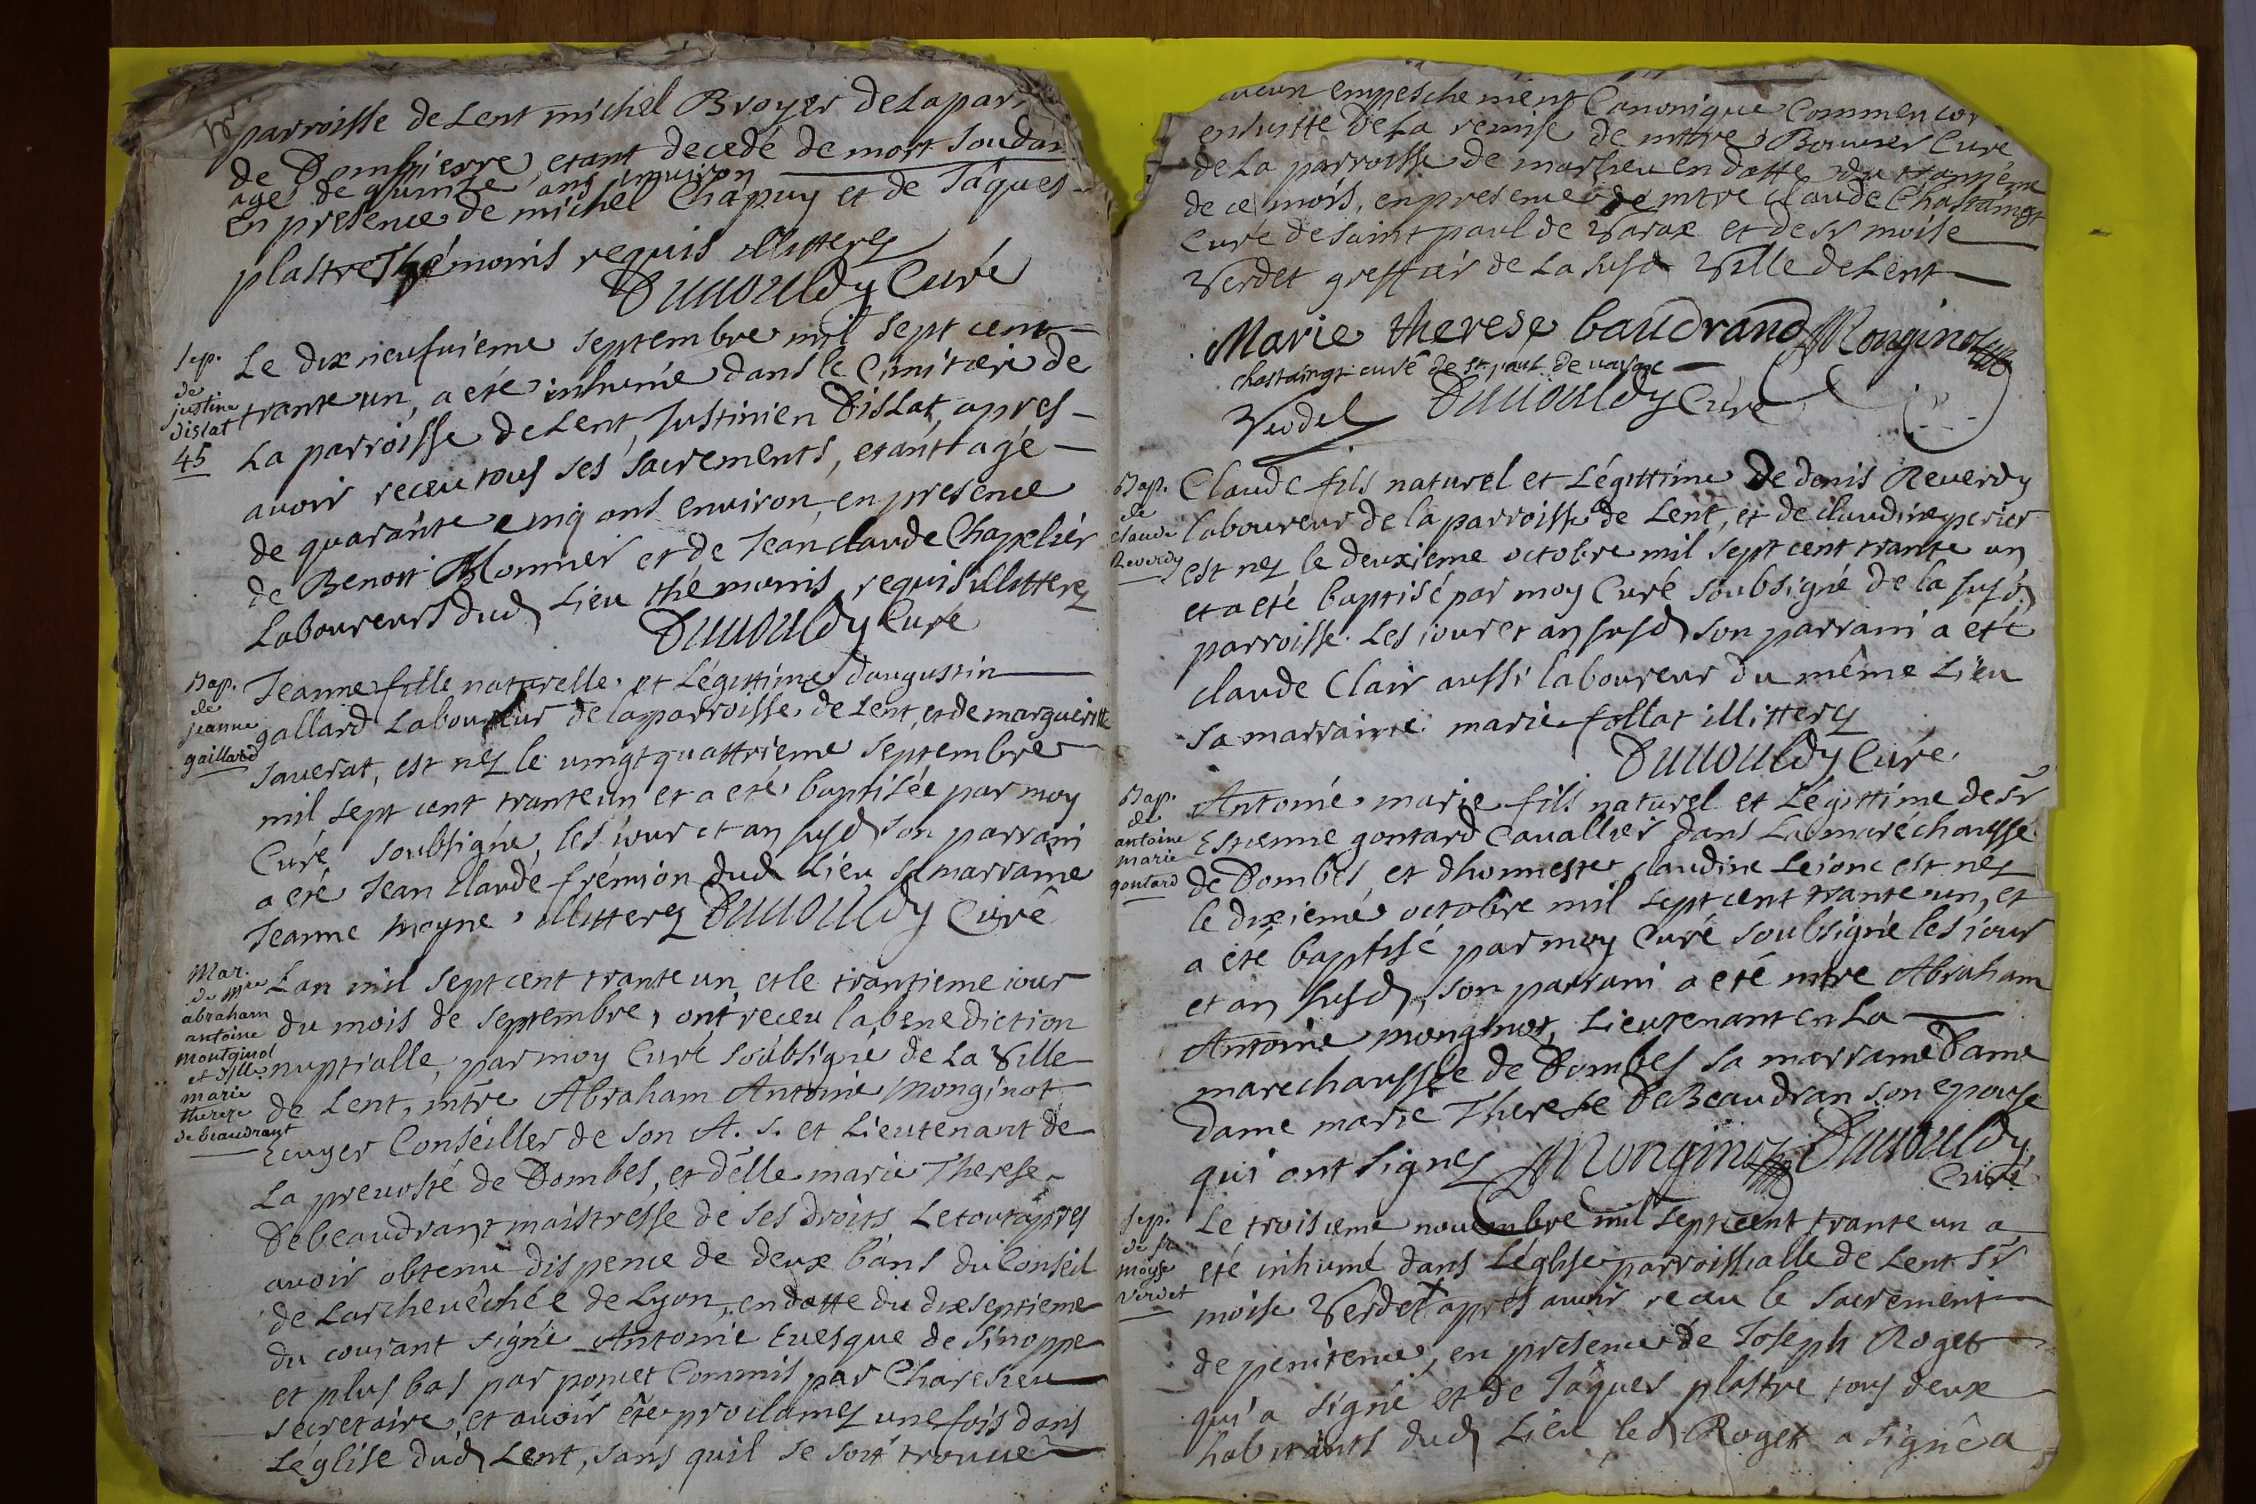 parroisse de Lent michel Broyer de la par
de Dombpierre, etant decedé de mort soudai
agé de quinze ans environ
en presence de michel Chapuy et de Jâques
plastre thémoins requis illitterez
Duuouldy Curé
Sep.
de
justine
dislat
45
Le dix neufuieme septembre mil sept cent
trante un, a eté inhumé dans le Cimitiere de
La parroisse de Lent, Justinien Dislat, apres
auoir receu tous ses sacrements, etant agé
de quarante cinq ans environ, en presence
de Benoit Monnier et de Jean claude Chappelier
Laboureurs dud Lieu thémoins requis illitterez
Duuouldy Curé
Bap.
de
jeanne
gaillard
Jeanne fille naturelle et Légittime d'augustin
gallard Laboureur de la parroisse de Lent, et de margueritte
sauerat, est nez le uingt quattrieme septembre
mil sept cent trante un et a eté baptisée par moy
Curé soubsigné, les iour et an susd son parrain
a eté Jean Claude frémion dud Lieu sa marraine
Jeanne moyne illitterez Duuouldy Curé
Mar.
de Mre
abraham
antoine
montginol
et dlle
marie
therese
de beaudrant
Lan mil sept cent trante un et le trantieme iour
du mois de septembre, ont receu la benediction
nuptialle, par moy Curé soubsigné de La Ville
de Lent, mtre Abraham Antoine Monginot
Ecuyer Conseiller de son A. S. et Lieutenant de
La preuosté de Dombes, et delle marie Therese
Debeaudrant maistresse de ses droits Le tout apres
auoir obtenu dispence de deux bans du Conseil
de Larcheuêchée de Lyon, en datte du dixseptieme
du courant signé Antoine Euesque de Sinoppe
et plus bas par pomet Commis par Charesieu
secretaire, et auoir été proclamez une fois dans
Léglise dud Lent, sans quil se soit trouué
aucun empeschement Canonique Comme en cor
ensuitte de La remise de mtre Bouuier Curé
de La parroisse de marlieu en datte du
de ce mois, en presence de mtre Claude Chastaingt
Curé de saint paul de Varax et de sr moise
Verdet greffier de La susd Ville de Lent
Marie therese baudrand Monginot
chastaingt curé de st paul de uarax
Verdet Duuouldy Curé
Bap.
de
claude
Reverdy
Claude fils naturel et Légittime De denis Reuerdy
laboureur de la parroisse de Lent, et de claudine perier
est nez le deuxieme octobre mil sept cent trante un
et a eté baptisé par moy Curé soubsigné de la susd
parroisse. Les iour et an susd son parrain a eté
claude Clair aussi laboureur du même Lieu
sa marraine marie follat illitterez
Duuouldy Curé
Bap.
de
antoine
marie
goutard
Antoine marie fils naturel et Légittime de sr
Estienne gontard Cauallier dans La maréchaussé
de Dombes, et dhonneste claudine Lejonc est nez
le dixieme octobre mil sept cent trante un, et
a eté baptisé par moy Curé soubsigné les iour
et an susd, son parrain a eté mtre Abraham
Antoine monginot, Lieutenant en La
marechaussée de Dombes sa marraine Dame
Dame marie Therese DeBeaudran son epouse
qui ont signez Monginot Duuouldy
Curé
Sep.
de sr
moyse
Verdet
Le troisieme nouembre mil sept cent trante un a
eté inhumé dans Léglise parroissialle de Lent sr
moise Verdet apres auoir receu le sacrement
de penitence, en presence de Joseph Roget
qui a signé et de Jâques plastre tous deux
habitants dud Lieu led Roget a signé a